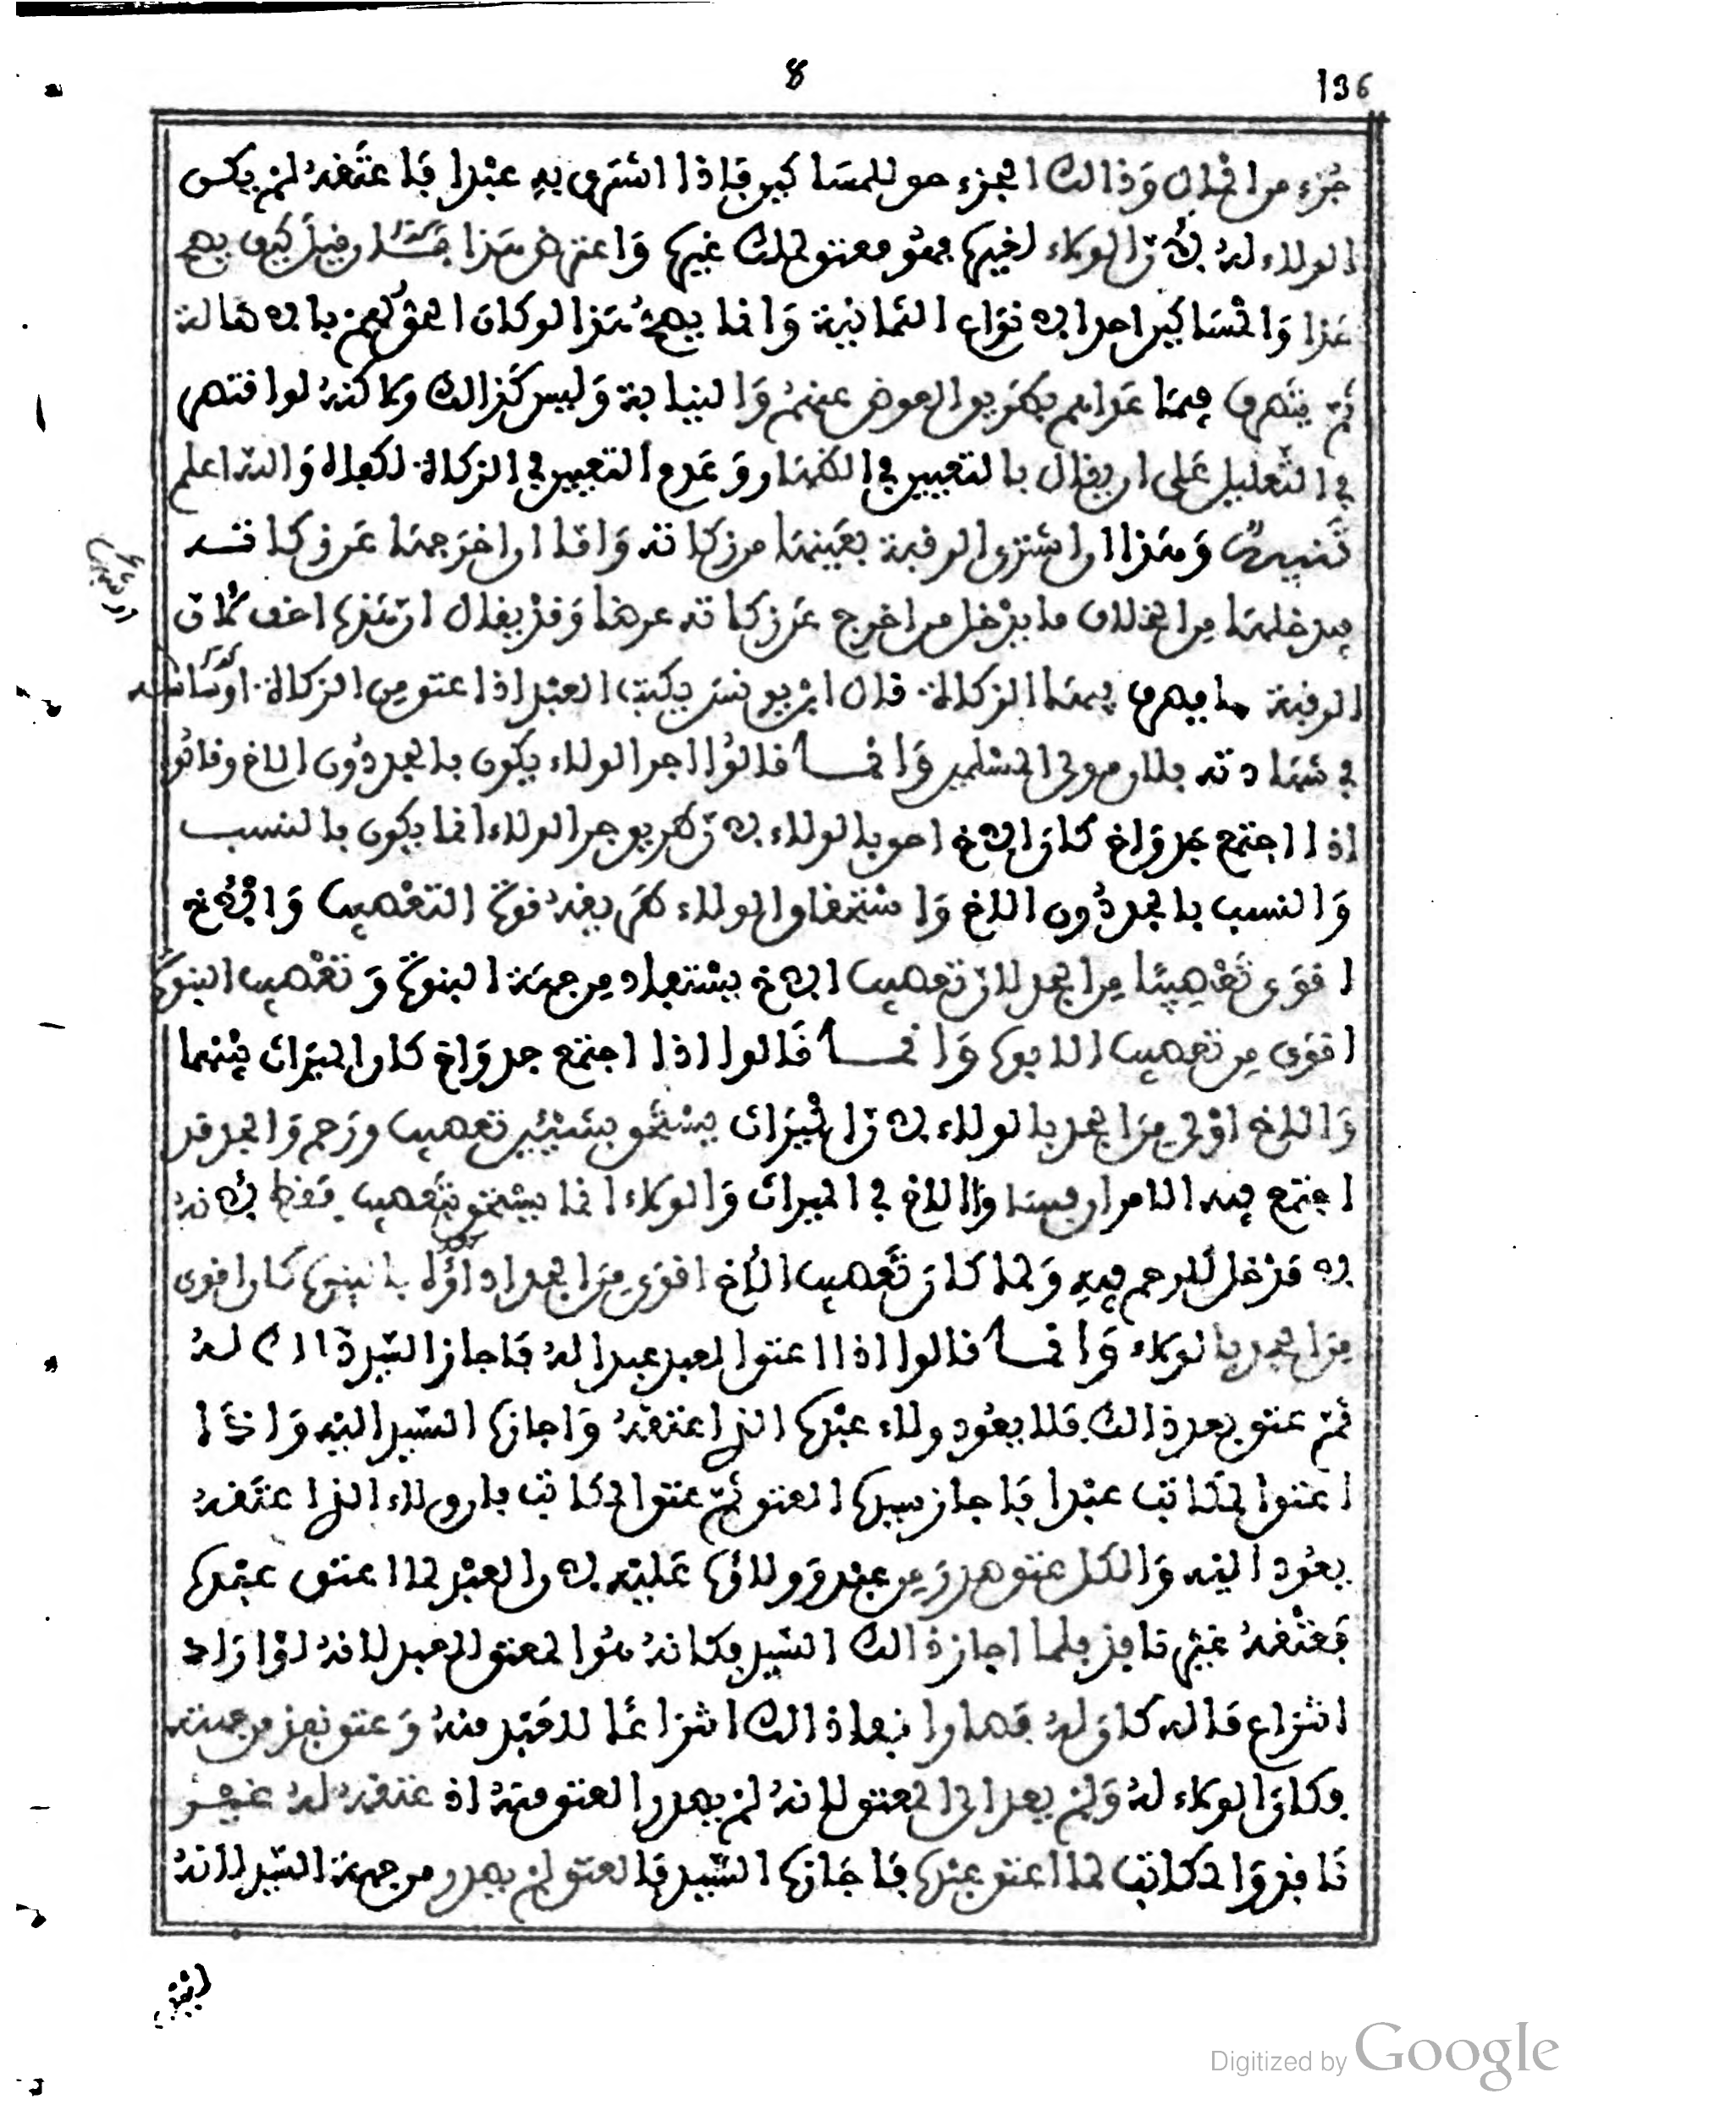 8
136
جزء من المال وذالك الجزء حق للمساكين فإذا اشترى به عبدا فاعتقه لم يكن
الولاء له لأن الولاء لغيره فهو معتق لملك غيره واعترض هذا فقيل كيف يصح
هذا والمساكين احد الأنواع الثمانية وانما يصح هذا لو كان الحق لهم بالأصالة
ثم يصرف فيما عداهم بطريق العوض عنهم والنيابة وليس كذالك ولاكنه لو اقتصر
في التعليل على ان يقال بالتعيين في وعدم التعيين في الزكاة لكفاه والله اعلم
تنبيه وهذا ان اشترى الرقبة بعينها من زكاته واما ان اخرجها عن زكاته
فيدخلها من الخلاف ما يدخل من اخرج عن زكاته عرضا وقد يقال ان هذه اخف لأن
الرقبة مما يصرف فيها الزكاة قال ابن يونس يكتب العبد اذا عتق من الزكاة او سائبة
في شهادته فلان مولى المسلمين وانما قالوا اجر الولاء يكون بالجد دون الاخ وقالوا
اذا اجتمع جد واخ كان الأخ احق بالولاء لأن طريق جر الولاء انما يكون بالنسب
والنسب بالجد دون الاخ واستحقاق الولاء طريقه قوة التعصيب والأخ
اقوى تعصيبا من الجد لان تعصيب الأخ يستفاد من جهة البنوة وتعصيب البنوة
اقوى من تعصيب الابوة وانما قالوا اذا اجتمع جد واخ كان الميراث بينهما
والاخ اولى من الجد بالولاء لأن الميراث يستحق بشيئين تعصيب ورحم والجد قد
اجتمع فيه الامران والاخ في الميراث والولاء انما يستحق بتعصيب فقط لأنه
لا مدخل للرحم فيه ولما كان تعصيب الاخ اقوى من الجد اذ ادلاؤه بالبنوة كان اقوى
من الجد بالولاء وانما قالوا اذا اعتق العبد عبدا له فاجاز السيد ذالك له
ثم عتق بعد ذالك فلا يعود ولاء عبده الذي اعتقه واجازه السيد اليه واذا
اعتق المكاتب عبدا فاجاز سيده العتق ثم عتق المكاتب فان ولاء الذي اعتقه
يعود اليه والكل عتق صدر من عبد وولاؤه عليه لأن العبد لما اعتق عبده
فعتقه غير نافذ فلما اجاز ذالك السيد فكانه هو المعتق للعبد لانه لو اراد
انتزاع ماله كان له فصار انفاذ ذالك انتزاعا للعبد منه وعتق نفذ من جهته
وكان الولاء له ولم يعد الى المعتق لانه لم يصدر العتق منه اذ عتقه له غير
نافذ والمكاتب لما اعتق عبده فاجازه السيد فالعتق لم يصدر من جهة السيد لانه